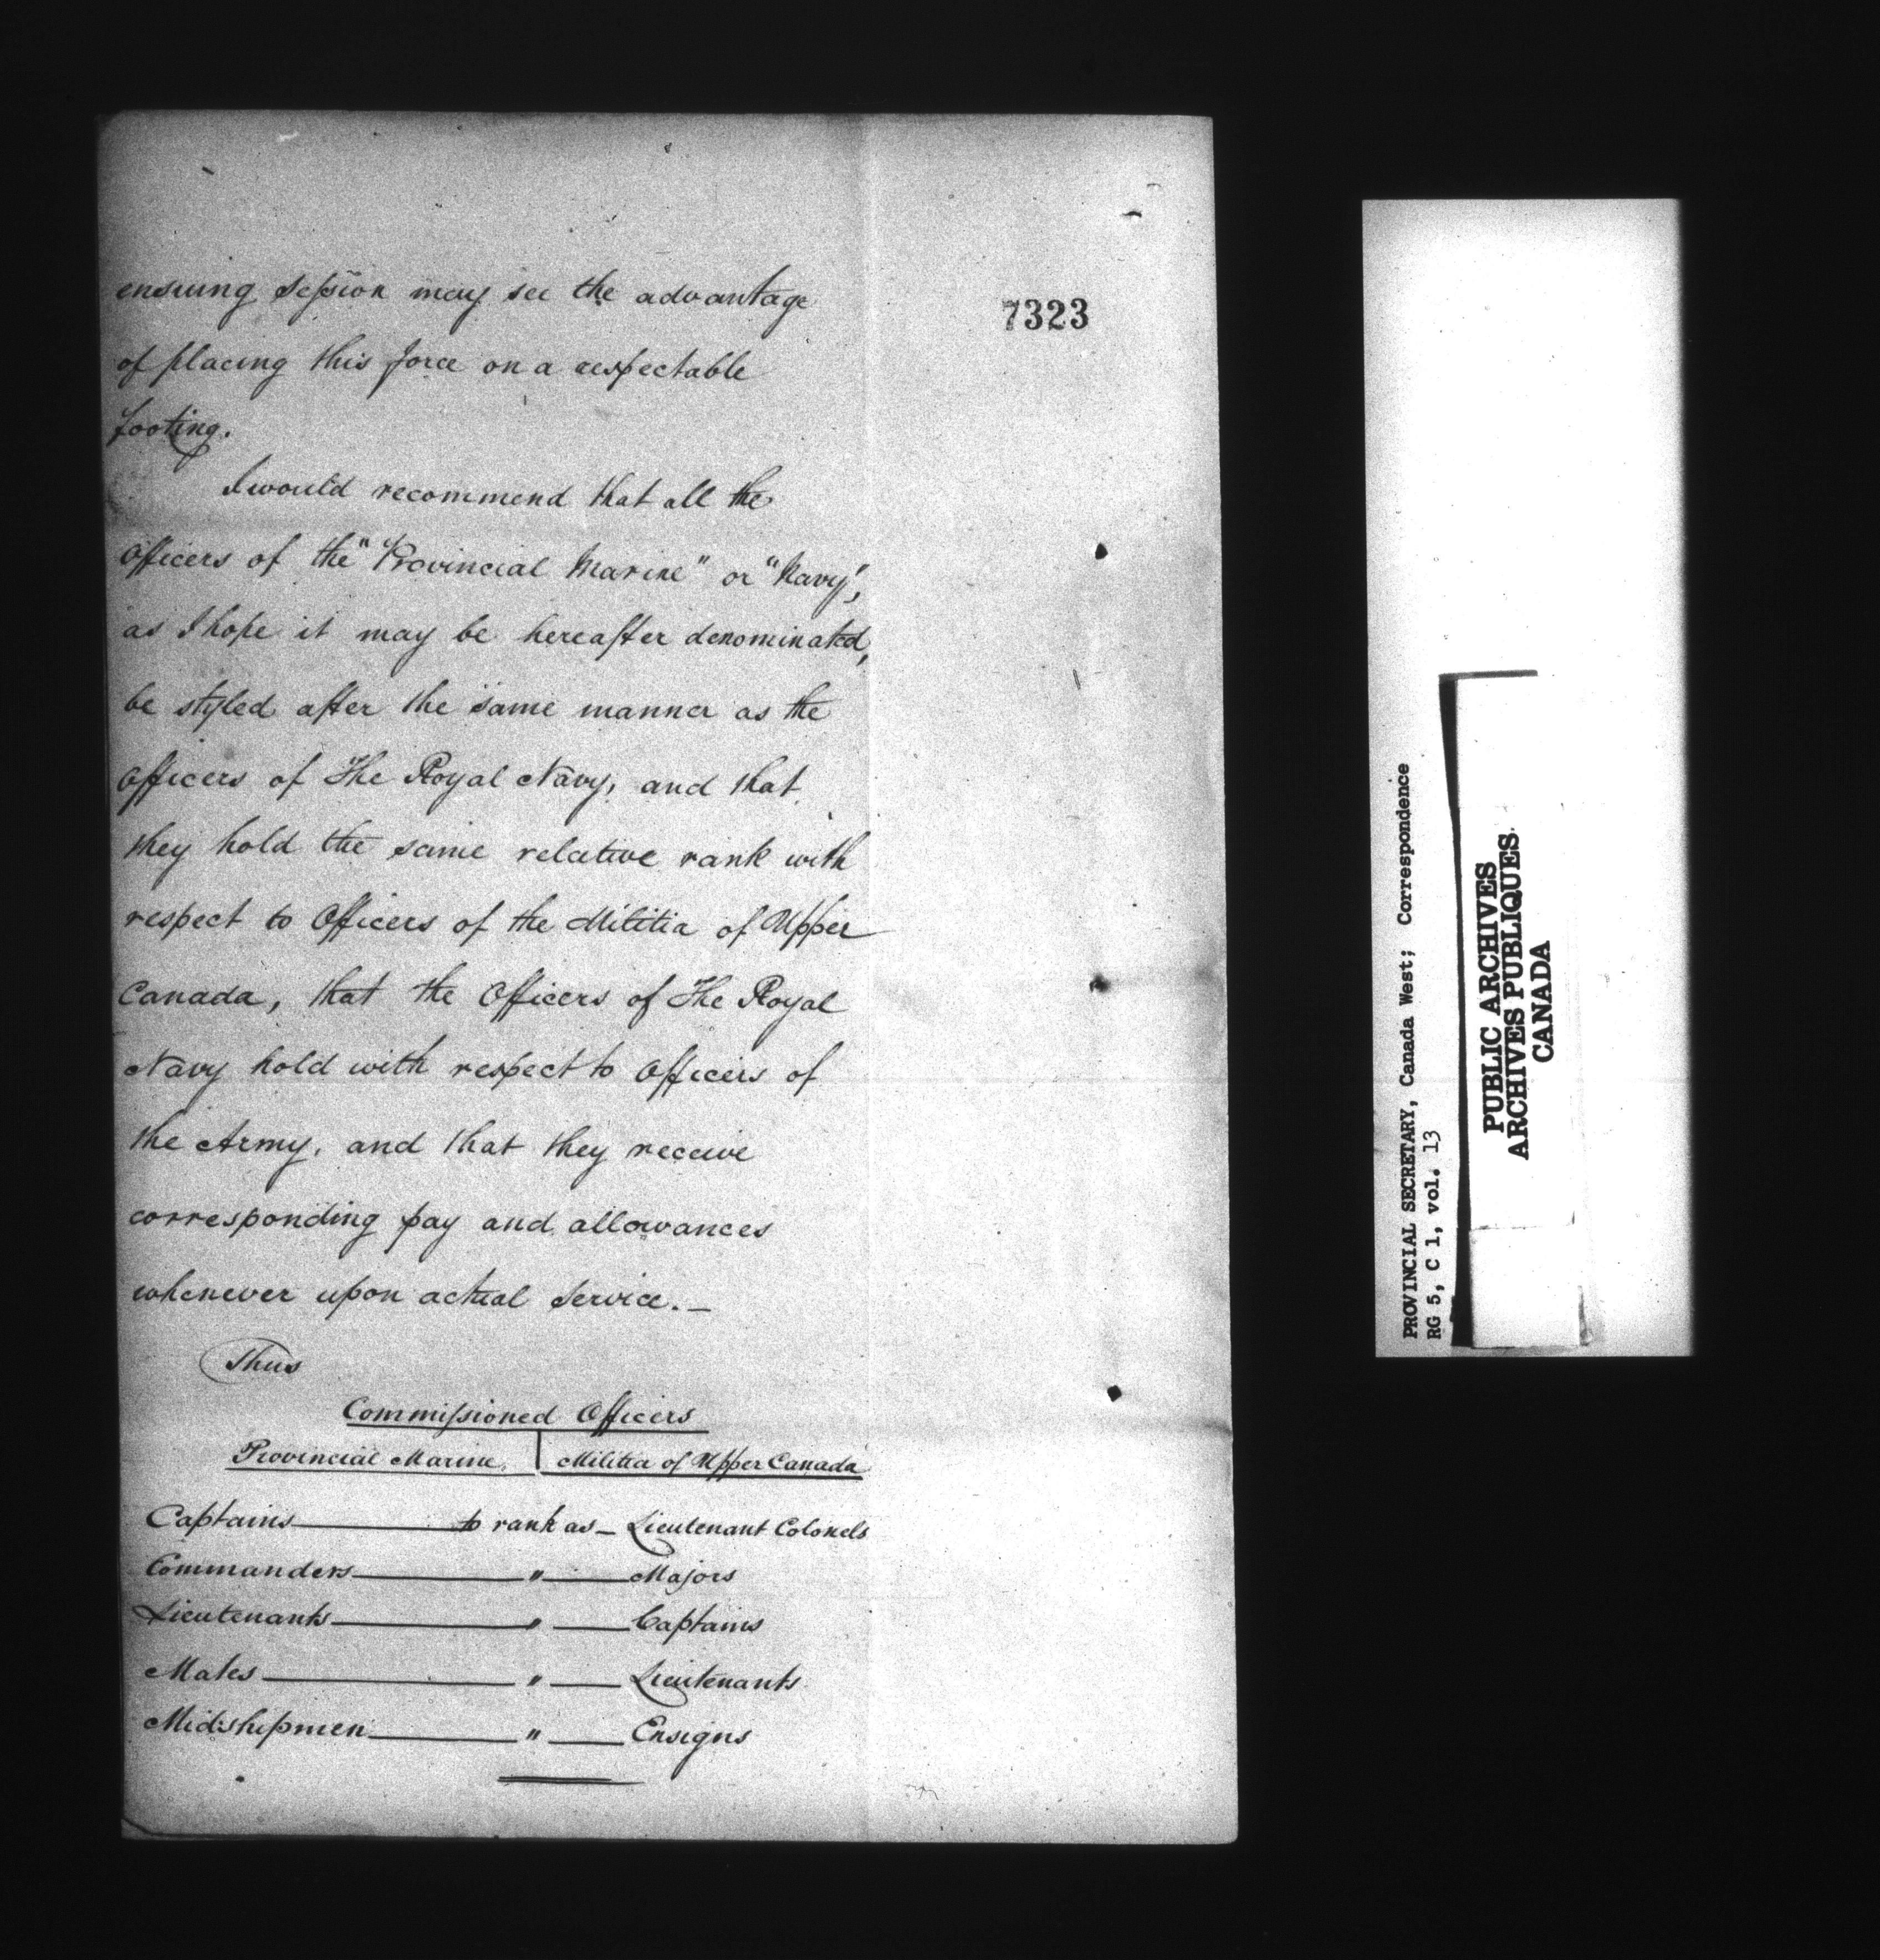 ensuing session may see the advantage
7323
of placing this force on a respectable
footing.
I would recommend that all the
Officers of the "Provincial Marine" or "Navy",
as I hope it may be hereafter denominated,
be styled after the same manner as the
Officers of The Royal Navy, and that
they hold the same relative rank with
respect to Officers of the Militia of Upper
Canada, that the Officers of The Royal
Navy hold with respect to Officers of
the Army, and that they receive
corresponding pay and allowances
whenever upon actual service. _
Thus
Commissioned Officers
Provincial Marine. | Militia of Upper Canada
Captains — to rank as — Lieutenant Colonels
Commanders — " — Majors
Lieutenants — " — Captains
Mates — " — Lieutenants
Midshipmen — " — Ensigns
PROVINCIAL SECRETARY, Canada West; Correspondence
RG 5, C 1, vol. 13
PUBLIC ARCHIVES
ARCHIVES PUBLIQUES
CANADA